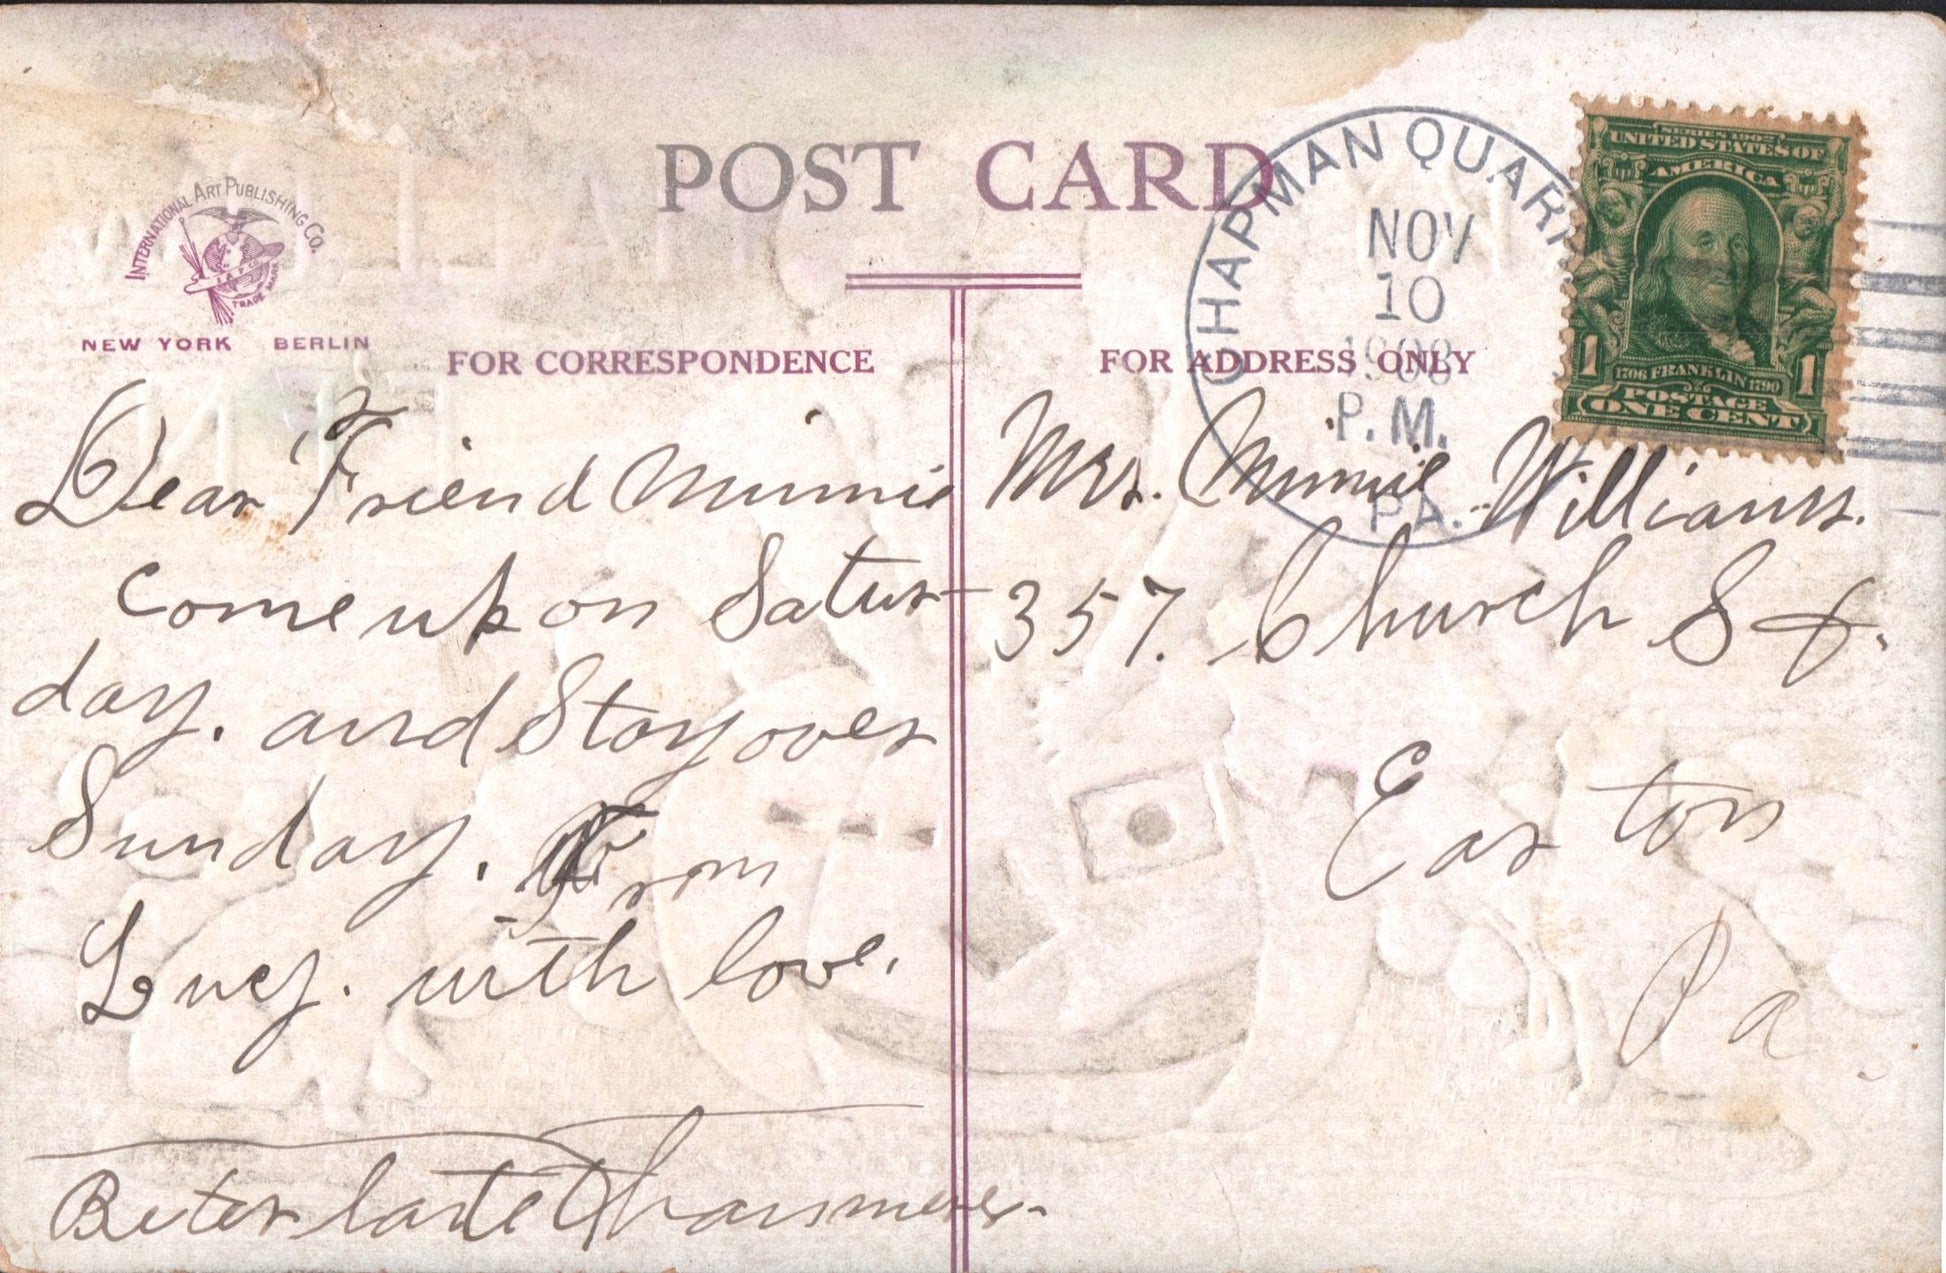 POST CARD
INTERNATIONAL ART PUBLISHING CO.
TRADE MARK
NEW YORK BERLIN
FOR CORRESPONDENCE
FOR ADDRESS ONLY
CHAPMAN QUARR
NOV
10
1908
P.M.
PA.
SERIES 1902
UNITED STATES OF
AMERICA
1 1
1706 FRANKLIN 1790
POSTAGE
ONE CENT
Dear Friend Minnie
Come up on Satur-
day. and Stay over
Sunday. From
Lucy. with love.
Beter late than never.
Mrs. Minnie Williams.
357. Church St.
Easton
Pa.